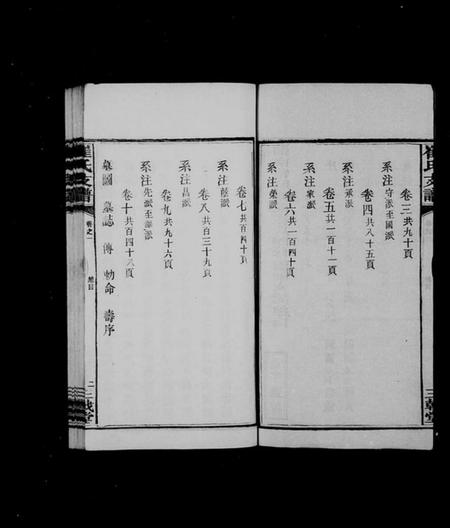 崔氏支譜
卷三共九十頁
系注守派至國派
卷四共八十五頁
系注承派
卷五共一百十一頁
系注榮派
卷六共一百四十頁
三戟堂
系注
卷七共百四十頁
系注昌派
卷八共百三十九頁
系注先派至
卷九共九十六頁
卷十共百四十八頁
墓圖 墓誌 傳 勅命 壽序
氏支譜
卷之一
總目
二
三戟堂